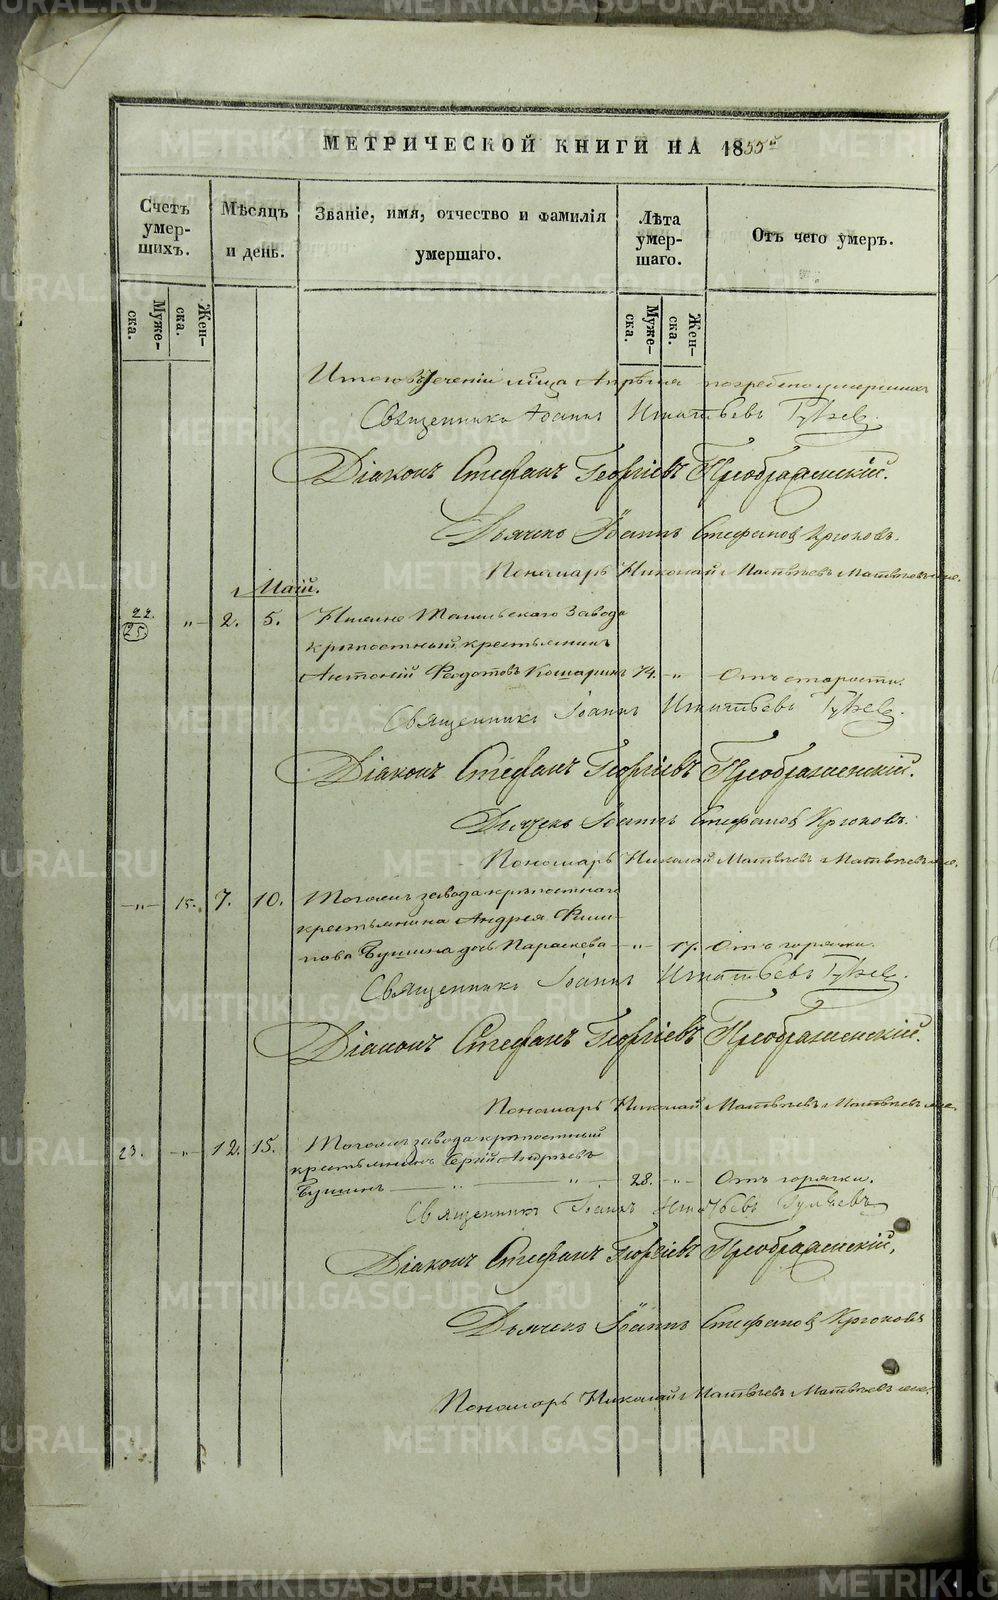 МЕТРИЧЕСКОЙ КНИГИ НА 1855й
Счетъ умер- шихъ.
Муже- ска.
Жен- ска.
Мѣсяцъ и день.
Званіе, имя, отчество и фамилія умершаго.
Лѣта умер- шаго.
Муже- ска.
Жен- ска.
Отъ чего умеръ.
Итого въ теченіи мѣсяца Апрѣля погребено умершихъ
Священникъ Іоаннъ Игнатьевъ
Діаконъ Стефанъ Георгіевъ Преображенскій.
Дьячекъ Іоаннъ Стефановъ Крюковъ.
Пономарь Николай Матвѣевъ
Маій.
22. (25) „ 2. 5. Нижне Тагильскаго Завода
крѣпостный крестьянинъ
Антоній Федотовъ Кошаринъ 74. „ Отъ старости.
Священникъ Іоаннъ Игнатьевъ
Діаконъ Стефанъ Георгіевъ Преображенскій.
Дьячекъ Іоаннъ Стефановъ Крюковъ.
Пономарь Николай Матвѣевъ
„ 15. 7. 10. Тогожъ завода крѣпостнаго
крестьянина Андрея Филип-
пова дочь Параскева „ 17. Отъ горячки.
Священникъ Іоаннъ Игнатьевъ
Діаконъ Стефанъ Георгіевъ Преображенскій.
Пономарь Николай Матвѣевъ
23. „ 12. 15. Тогожъ завода крѣпостный
крестьянинъ Андреевъ
„ „ 28. „ Отъ горячки.
Священникъ Іоаннъ Игнатьевъ
Діаконъ Стефанъ Георгіевъ Преображенскій,
Дьячекъ Іоаннъ Стефановъ Крюковъ
Пономарь Николай Матвѣевъ
METRIKI.GASO-URAL.RU